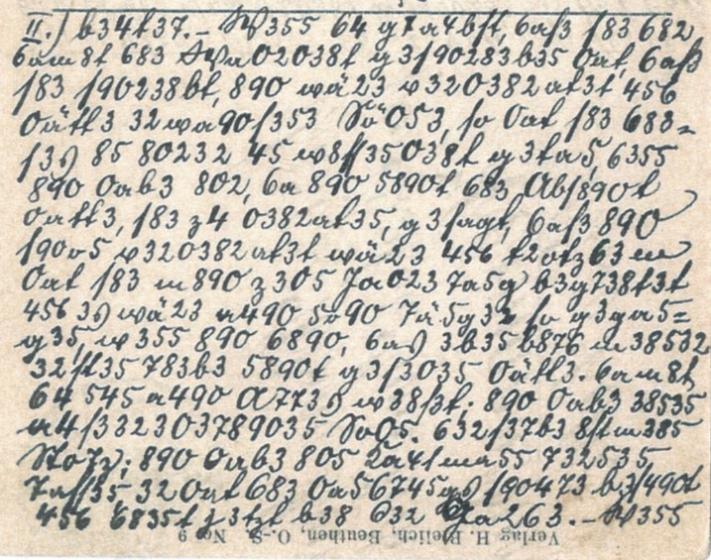 II.) b34t37. – W355 64 g7a4bſt, 6aß ſ83 682,
6am8t 683 Wa02038t g3ſ90283b35 0at, 6aß
ſ83 ſ90238bt, 890 wä23 v320382at3t 456
0ätt3 32wa90ſ353 Sö053, ſo 0at ſ83 683=
ſ3s 85 80232 45w8ſſ35038t g3ta5, 6355
890 0ab3 802, 6a 890 5890t 683 Abſ890t
0att3, ſ83 z4 0382at35, g3ſagt, 6aß 890
ſ90o5 v320382at3t wä23 456 t2otz63m
0at ſ83 m890 z305 Ja023 7a5g b3g738t3t
456 3s wä23 a490 5o90 7ä5g32 ſo g3ga5=
g35, w355 890 6890, 6as 3b35b876 m38532
32ſt35 783b3 5890t g3ſ3035 0ätt3. 6am8t
64 545 a490 A773s w38ßt; 890 0ab3 38535
a4ß32303789035 So05. 632ſ37b3 8ſt m385
Sto7z; 890 0ab3 805 732535
7aſſ35 32 0at 683 0a56745gs ſ90473 b3ſ490t
456 6835t j3tzt b38 632 Ga263. – W355
Verlag H. Bielich, Beuthen, O.-S. No. 9